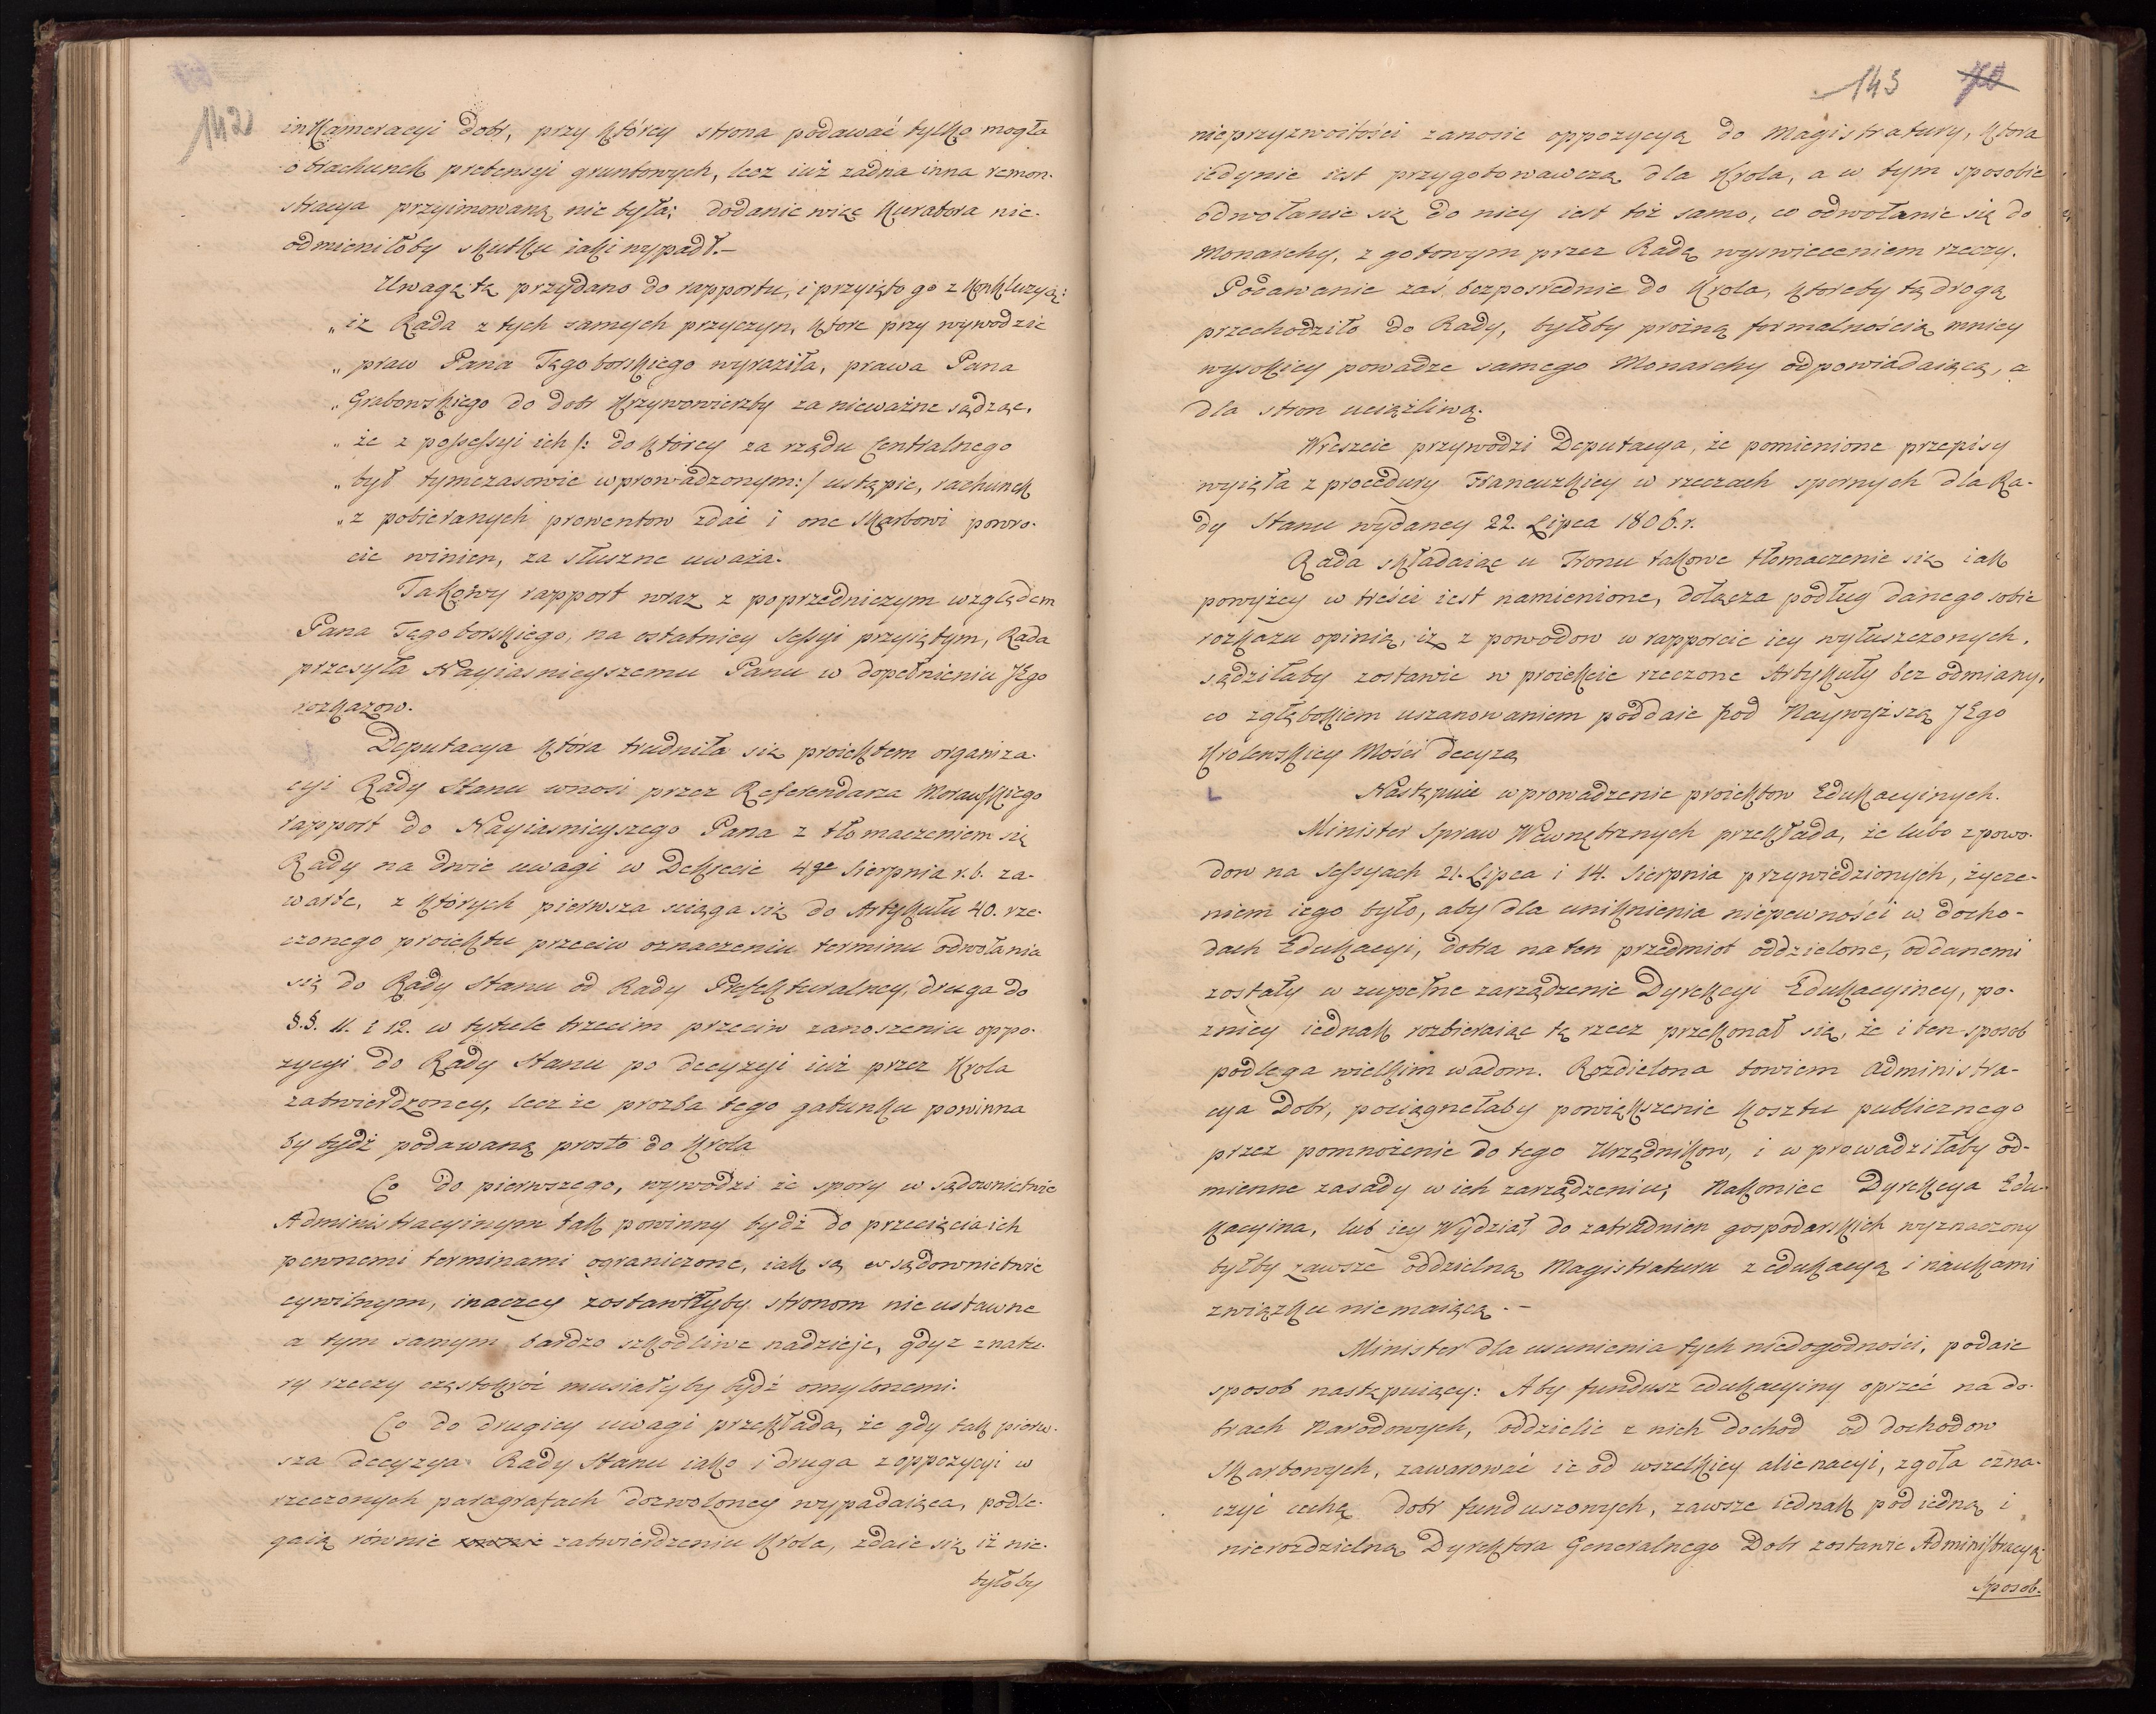 142
inkameracyi dobr, przy ktorey strona podawać tylko mogła
obrachunek pretensyi gruntowych, lecz iuż żadna inna remon-
stracya przyimowaną nie była; dodanie więc kuratora nie-
odmieniłoby skutku iaki wypadł.—
Uwagę tę przydano do rapportu, i przyięto go z konkluzyą:
„iż Rada z tych samych przyczyn, ktore przy wywodzie
„praw Pana Tęgoborskiego wyraziła, prawa Pana
„Grabowskiego do dobr Krzywowierzby za nieważne sądząc,
„że z possessyi ich /: do ktorey za rządu Centralnego
„był tymczasowie wprowadzonym :/ ustąpić, rachunek
„z pobieranych prowentow zdać i one Skarbowi powro-
cić winien, za słuszne uważa.
Takowy rapport wraz z poprzedniczym względem
Pana Tęgoborskiego, na ostatniey Sessyi przyiętym, Rada
przesyła Nayiasnieyszemu Panu w dopełnieniu JEgo
rozkazow.
Deputacya która trudniła się proiektem organiza-
cyi Rady Stanu wnosi przez Referendarza Morawskiego
rapport do Nayiasnieyszego Pana z tłomaczeniem się
Rady na dwie uwagi w Dekrecie 4go Sierpnia r.b. za-
warte, z których pierwsza sciąga się do Artykułu 40. rze-
czonego proiektu przeciw oznaczeniu terminu odwołania
się do Rady Stanu od Rady Prefekturalney, druga do
§.§. 11. i 12. w tytule trzecim przeciw zanoszeniu oppo-
zycyi do Rady Stanu po decyzyi iuż przez Krola
zatwierdzoney, lecz że prozba tego gatunku powinna
by bydź podawaną prosto do Krola
Co do pierwszego, wywodzi że spory w sądownictwie
Administracyinym tak powinny bydź do przecięcia ich
pewnemi terminami ograniczone, iak są w sądownictwie
cywilnym, inaczey zostawiłyby stronom nieustawne
a tym samym bardzo szkodliwe nadzieje, gdyż z natu-
ry rzeczy częstokroć musiałyby bydź omylonemi.
Co do drugiey uwagi przekłada, że gdy tak pierw-
sza decyzya Rady Stanu iako i druga z oppozycyi w
rzeczonych paragrafach dozwoloney wypadaiąca, podle-
gaią równie zatwierdzeniu Krola, zdaie się iż nie-
byłoby
143 70
nieprzyzwoitości zanosić oppozycyą do Magistratury, ktora
iedynie iest przygotowawczą dla Krola, a w tym sposobie
odwołanie się do niey iest toż samo, co odwołanie się do
Monarchy, z gotowym przez Radę wyswieceniem rzeczy.
Podawanie zaś bezposrednie do Krola, ktoreby tą drogą
przechodziło do Rady, byłoby prożną formalnością mniey
wysokiey powadze samego Monarchy odpowiadaiącą, a
dla stron uciążliwą.
Wreszcie przywodzi Deputacya, że pomienione przepisy
wyięła z procedury Francuzkiey w rzeczach spornych dla Ra-
dy Stanu wydaney 22. Lipca 1806. r.
Rada składaiąc u Tronu takowe tłomaczenie się iak
powyżey w treści iest namienione, dołącza podług danego sobie
rozkazu opinią, iż z powodow w rapporcie iey wyłuszczonych,
sądziłaby zostawić w proiekcie rzeczone Artykuły bez odmiany,
co z głębokiem uszanowaniem poddaie pod Naywyższą JEgo
Krolewskiey Mości decyzą
Następuie wprowadzenie proiektow Edukacyinych.
Minister Spraw Wewnętrznych przekłada, że lubo z powo-
dow na Sessyach 21. Lipca i 14. Sierpnia przywiedzionych, życze-
niem iego było, aby dla uniknienia niepewności w docho-
dach Edukacyi, dobra na ten przedmiot oddzielone, oddanemi
zostały w zupełne zarządzenie Dyrekcyi Edukacyiney, po-
zniey iednak rozbieraiąc tę rzecz przekonał się, że i ten sposob
podlega wielkim wadom. Rozdielona bowiem Administra-
cya Dobr, pociągnełaby powiększenie kosztu publicznego
przez pomnożenie do tego Urzędnikow, i wprowadziłaby od-
mienne zasady w ich zarządzeniu; Nakoniec Dyrekcya Edu-
kacyina, lub iey Wydział do zatrudnien gospodarskich wyznaczony
byłby zawsze oddzielną Magistratura z edukacyą i naukami
związku niemaiącą.—
Minister dla usunienia tych niedogodności, podaie
sposob następuiący: Aby fundusz edukacyiny oprzeć na do-
brach Narodowych, oddzielić z nich dochod od dochodow
Skarbowych, zawarować ie od wszelkiey alienacyi, zgoła ozna-
czyć cechą dobr funduszowych, zawsze iednak pod iedną i
nierozdzielną Dyrektora Generalnego Dobr zostawić Administracyą.
Sposob.